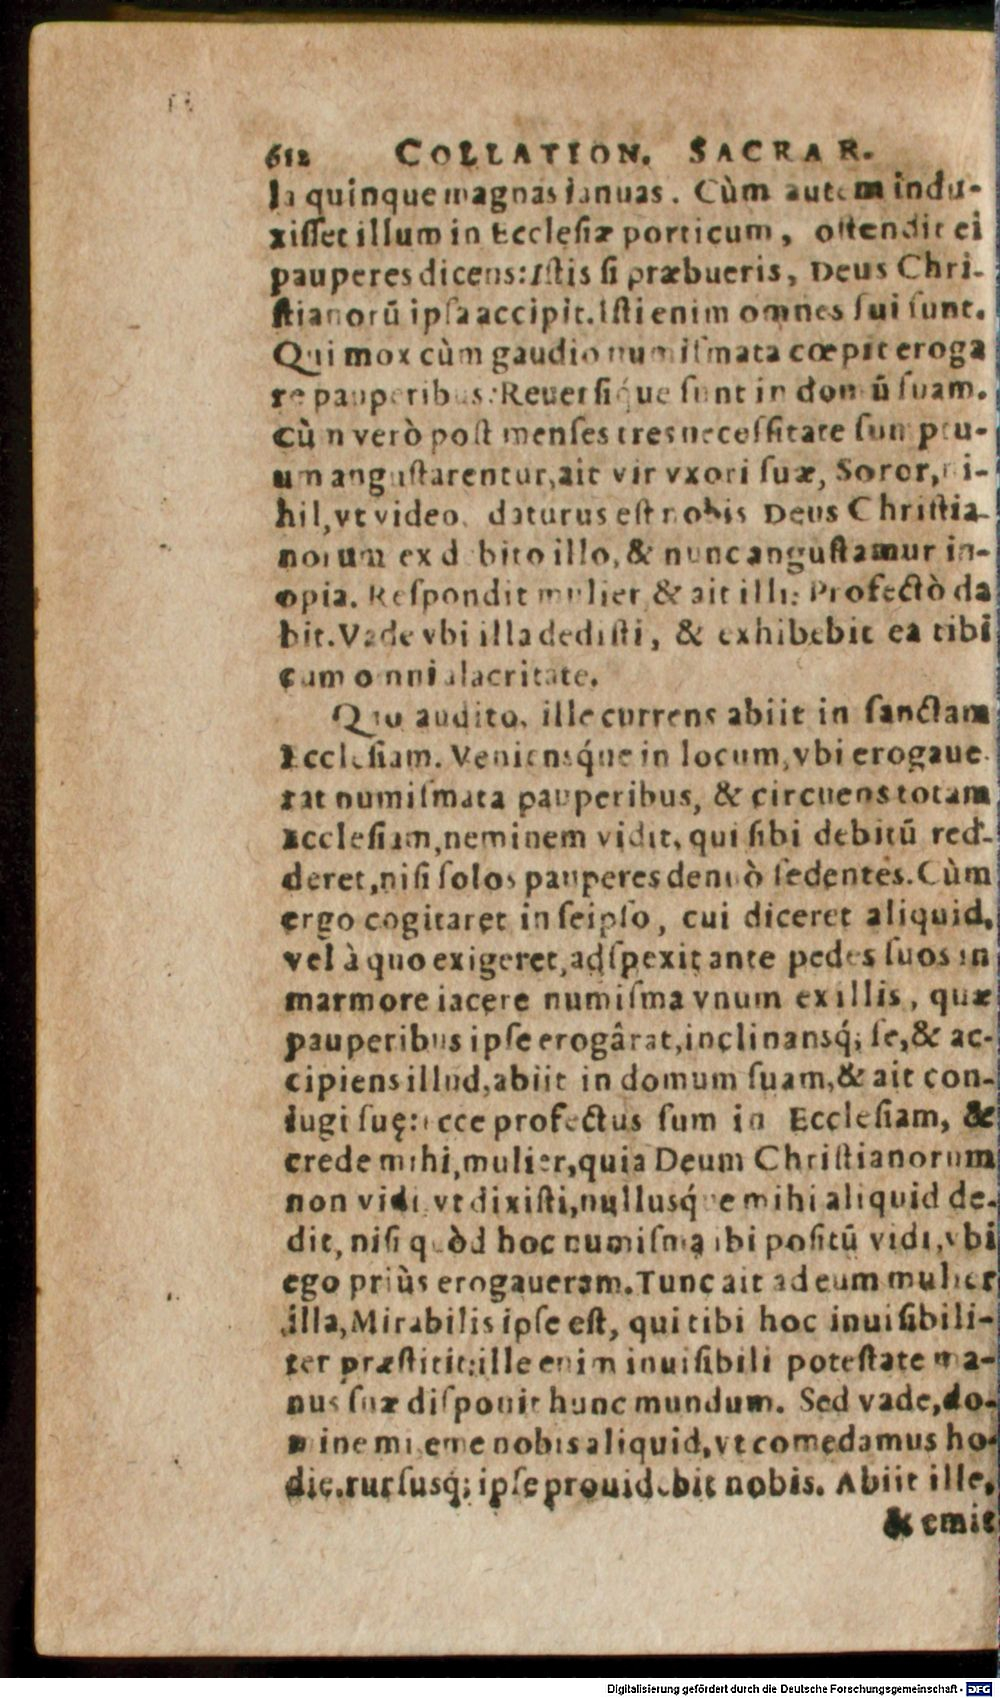 612 COLLATION. SACRAR.
la quinque magnas ianuas. Cùm autem indu-
xiſſet illum in Eccleſiæ porticum, oſtendit ei
pauperes dicens: Iſtis ſi præbueris, Deus Chri-
ſtianorū ipſa accipit. Iſti enim omnes ſui ſunt.
Qui mox cùm gaudio numiſmata cœpit eroga
re pauperibus: Reuerſiq́ue ſunt in domū ſuam.
Cùm verò poſt menſes tres neceſſitate ſumptu-
um anguſtarentur, ait vir vxori ſuæ, Soror, ni-
hil, vt video, daturus eſt nobis Deus Chriſtia-
norum ex debito illo, & nunc anguſtamur in-
opia. Reſpondit mulier & ait illi: Profectò da
bit. Vade vbi illa dediſti, & exhibebit ea tibi
cum omni alacritate.
Quo audito, ille currens abiit in ſanctam
Eccleſiam. Veniensq́ue in locum, vbi erogaue
rat numiſmata pauperibus, & circuens totam
Eccleſiam, neminem vidit, qui ſibi debitū red-
deret, niſi ſolos pauperes denuò ſedentes. Cùm
ergo cogitaret in ſeipſo, cui diceret aliquid,
vel à quo exigeret, adſpexit ante pedes ſuos in
marmore iacere numiſma vnum ex illis, quæ
pauperibus ipſe erogârat, inclinansq́; ſe, & ac-
cipiens illud, abiit in domum ſuam, & ait con-
iugi ſuę: ecce profectus ſum in Eccleſiam, &
crede mihi, mulier, quia Deum Chriſtianorum
non vidi vt dixiſti, nullusq́ue mihi aliquid de-
dit, niſi quòd hoc numiſma ibi poſitū vidi, vbi
ego priùs erogaueram. Tunc ait ad eum mulier
illa, Mirabilis ipſe eſt, qui tibi hoc inuiſibili-
ter præſtitit: ille enim inuiſibili poteſtate ma-
nus ſuæ diſponit hunc mundum. Sed vade, do-
mine mi, eme nobis aliquid, vt comedamus ho-
die, rurſusq́; ipſe prouidebit nobis. Abiit ille,
& emit
Digitalisierung gefördert durch die Deutsche Forschungsgemeinschaft - DFG